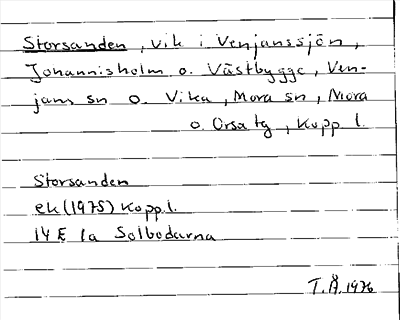 Storsanden, vik i Venjanssjön,
Johannisholm o. Västbygge, Ven-
jans sn o. Vika, Mora sn, Mora
o. Orsa tg, Kopp l.
Storsanden
ek (1975) Kopp l.
14 E 1a Solbodarna
T.Å. 1976